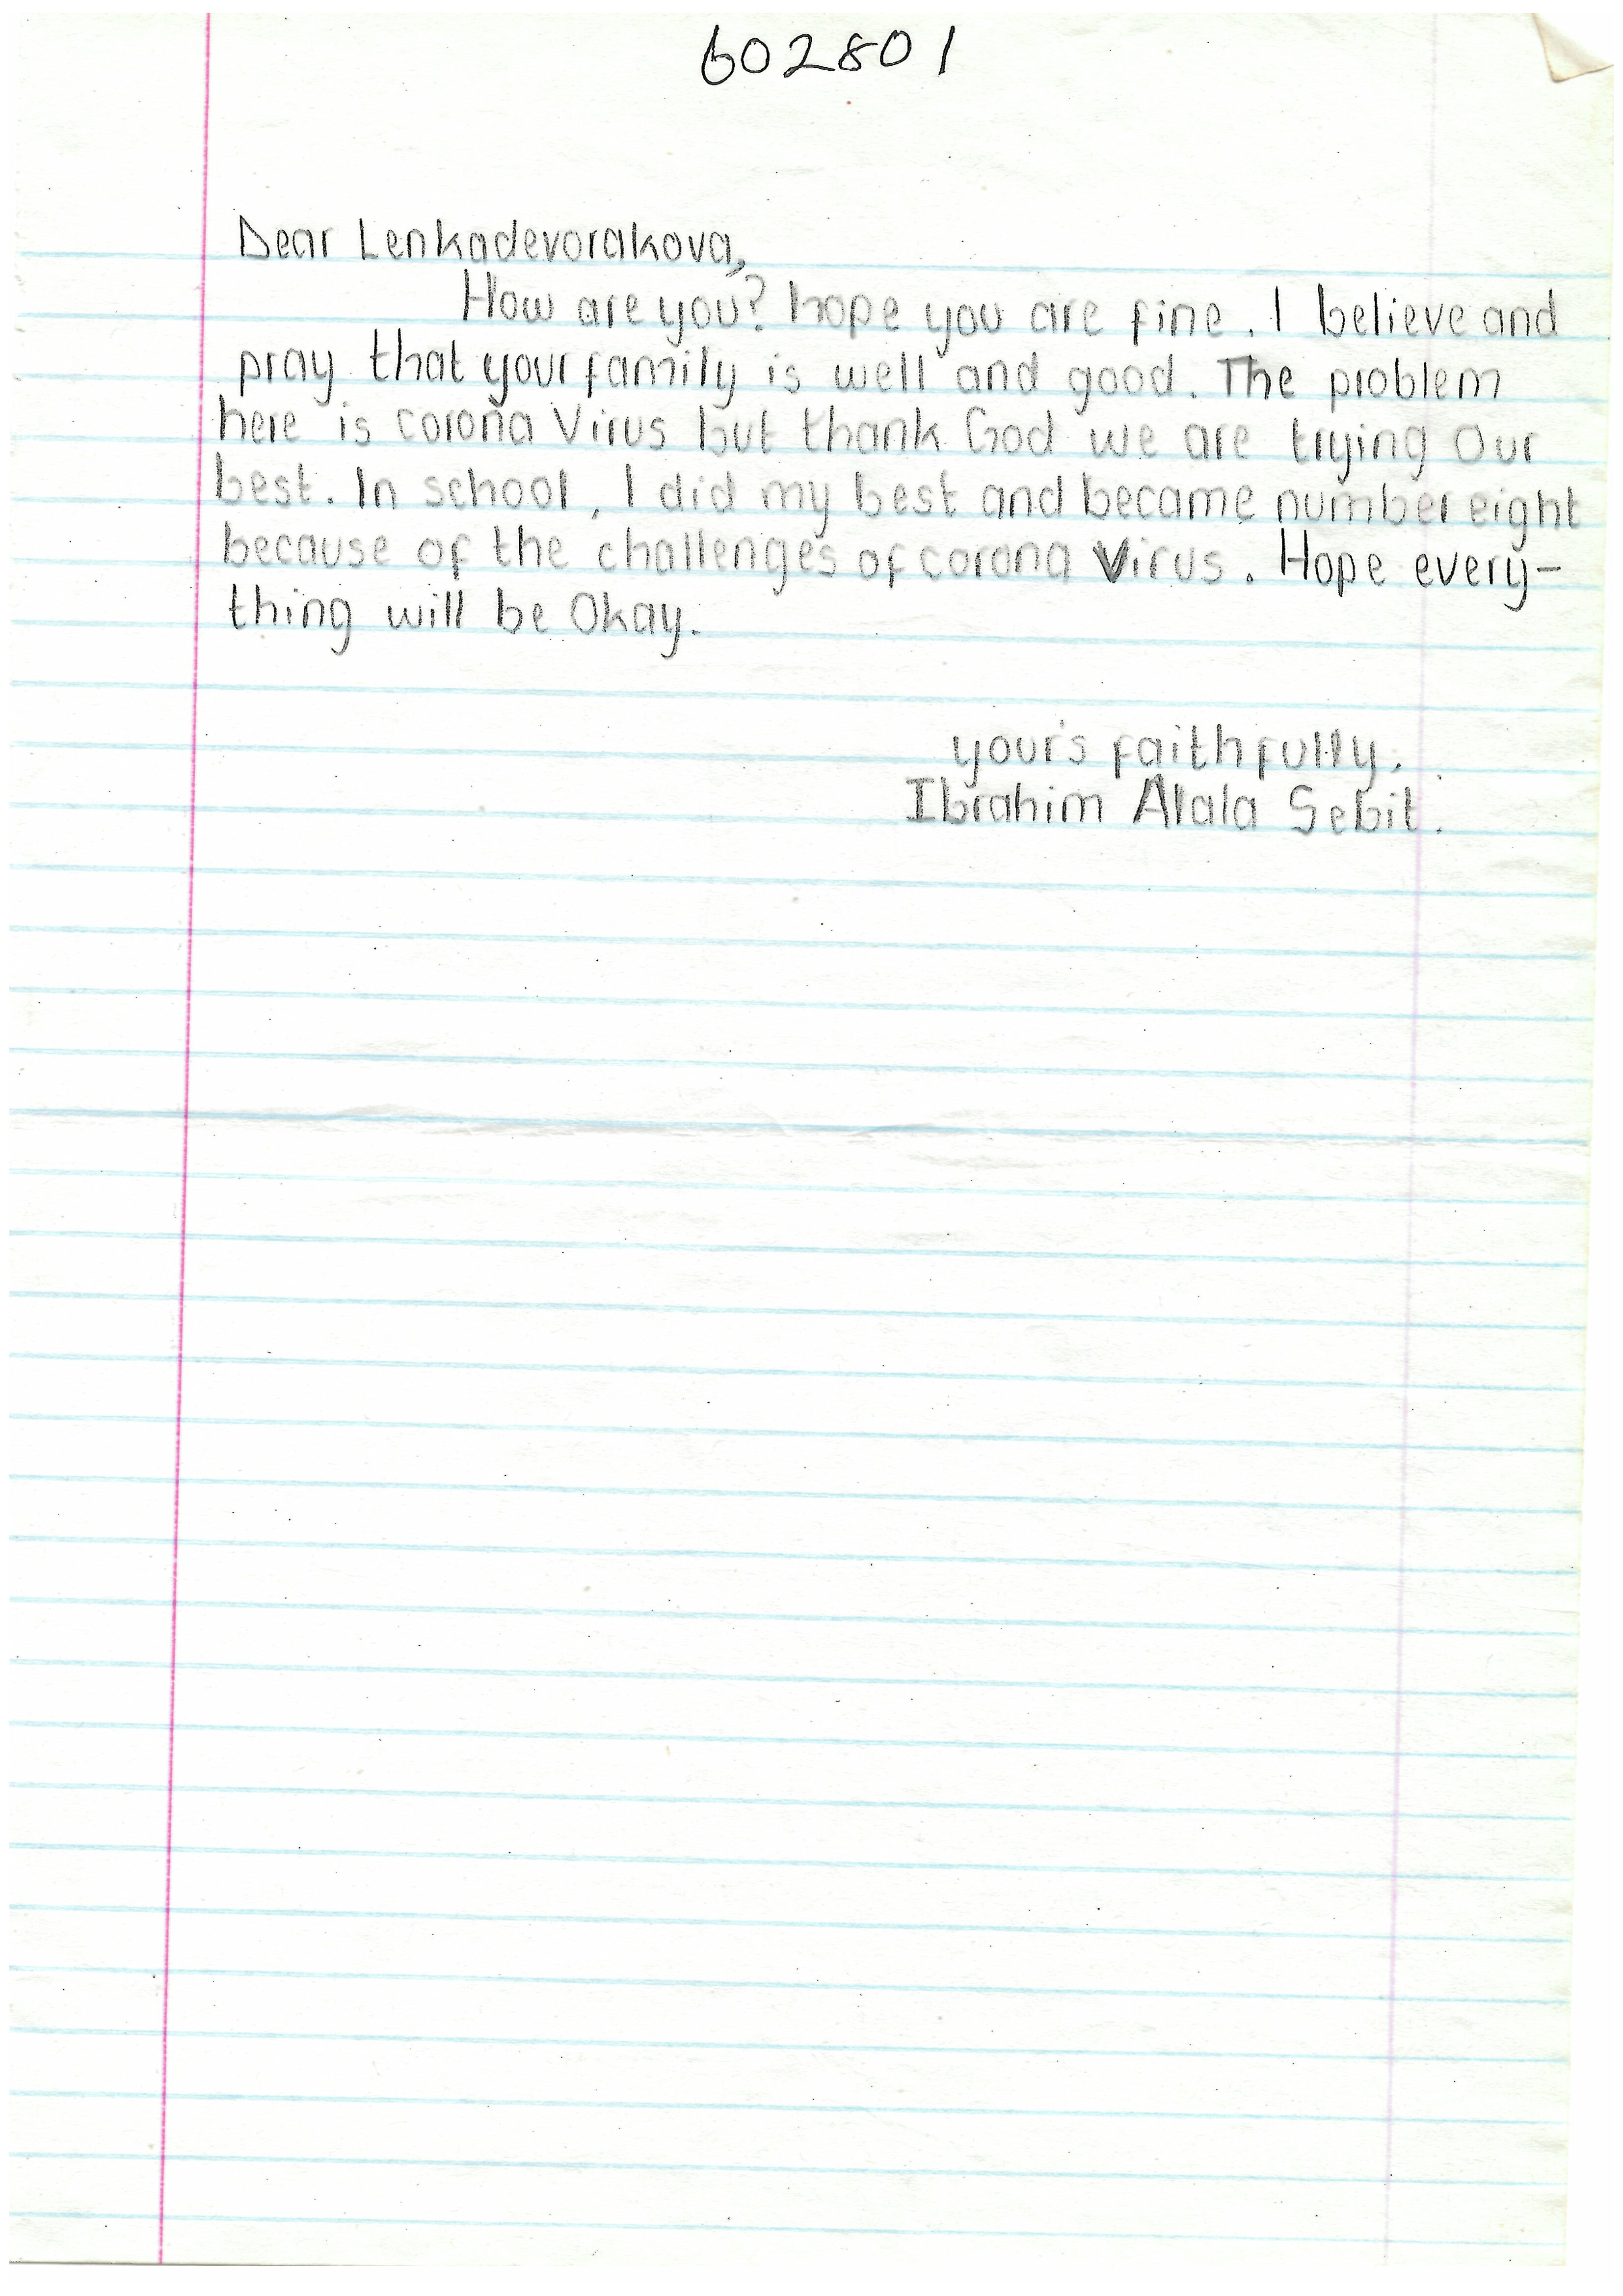 602801
Dear Lenkadevorakova,
How are you? hope you are fine. I believe and
pray that your family is well and good. The problem
here is corona Virus but thank God we are trying Our
best. In school, I did my best and became number eight
because of the challenges of corona Virus. Hope every-
thing will be Okay.
your's faithfully.
Ibrahim Alala Sebit.